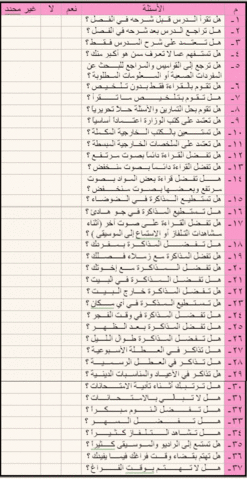 م الأسئلة نعم لا غير محدد
١- هل تقرأ الدرس قبل شرحه في الفصل ؟
٢- هل تراجع الدرس بعد شرحه في الفصل ؟
٣- هل تعتمد على شرح المدرس فقط ؟
٤- هل تستفهم عما لا تعرف ممن هو أكبر سنك ؟
٥- هل ترجع إلى القواميس والمراجع للبحث عن المفردات الصعبة أو المعلومات المطلوبة ؟
٦- هل تقوم بالقراءة فقط بدون تلخيص ؟
٧- هل تقوم بتلخيص ما تقرأ ؟
٨- هل تقوم بحل التمارين والأسئلة حلاً تحريرياً ؟
٩- هل تعتمد على كتب الوزارة اعتماداً أساسياً ؟
١٠- هل تستعين بالكتب الخارجية المكملة ؟
١١- هل تعتمد على الملخصات الخارجية المبسطة ؟
١٢- هل تفضل القراءة دائماً بصوت مرتفع ؟
١٣- هل تفضل القراءة دائماً بصوت منخفض ؟
١٤- هل تفضل قراءة بعض المواد بصوت مرتفع وبعضها بصوت منخفض ؟
١٥- هل تستطيع المذاكرة في الضوضاء ؟
١٦- هل تستطيع المذاكرة في جو هادئ ؟
١٧- هل تفضل القراءة على صوت آخر (أثناء مشاهدة التلفاز أو الاستماع إلى الموسيقى) ؟
١٨- هل تفضل المذاكرة بمفردك ؟
١٩- هل تفضل المذاكرة مع زملاء فصلك ؟
٢٠- هل تفضل المذاكرة مع إخوتك ؟
٢١- هل تفضل المذاكرة في البيت ؟
٢٢- هل تفضل المذاكرة خارج البيت ؟
٢٣- هل تستطيع المذاكرة في أي مكان ؟
٢٤- هل تفضل المذاكرة في وقت الفجر ؟
٢٥- هل تفضل المذاكرة بعد الظهر ؟
٢٦- هل تفضل المذاكرة طوال الليل ؟
٢٧- هل تذاكر في العطلة الأسبوعية ؟
٢٨- هل تذاكر في العطل الرسمية ؟
٢٩- هل تذاكر في الأعياد والمناسبات الدينية ؟
٣٠- هل ترتبك أثناء تأدية الامتحانات ؟
٣١- هل لا تبالي بالامتحانات ؟
٣٢- هل تفضل النوم مبكراً ؟
٣٣- هل تفضل السهر ؟
٣٤- هل تشاهد التلفاز كثيراً ؟
٣٥- هل تستمع إلى الراديو والموسيقى كثيراً ؟
٣٦- هل تهتم بقضاء وقت فراغك فيما يفيدك ؟
٣٧- هل لا تهتم بوقت الفراغ ؟